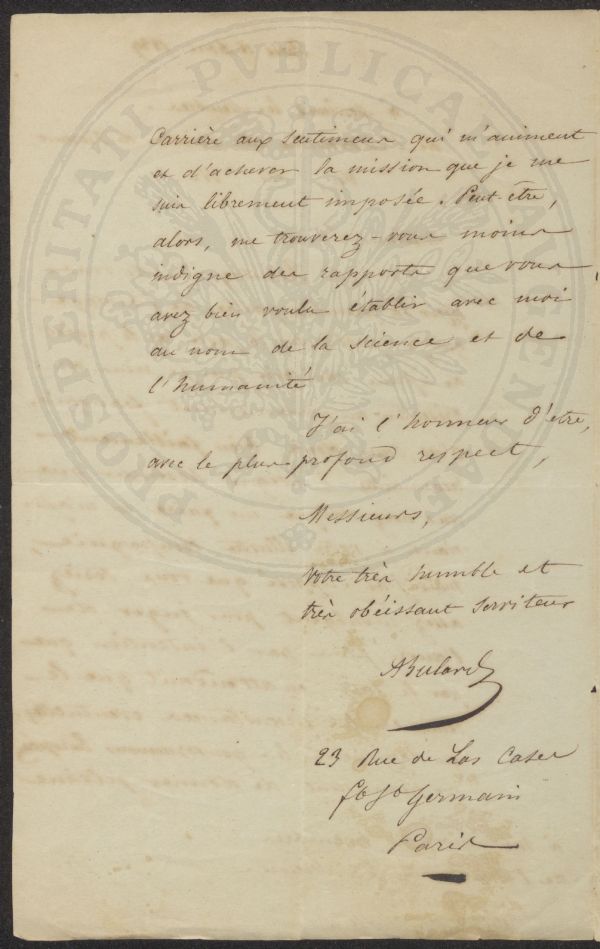 PROSPERITATI PVBLICAE AVGENDAE
Carrière aux sentimens qui m'animent
et d'achever la mission que je me
suis librement imposée. Peut-être,
alors, me trouverez-vous moins
indigne des rapports que vous
avez bien voulu établir avec moi
au nom de la science et de
l'humanité
J'ai l'honneur d'être,
avec le plus profond respect,
Messieurs,
Votre très humble et
très obéissant serviteur
ABulard
23 Rue de Las Cases
fbg St Germain
Paris